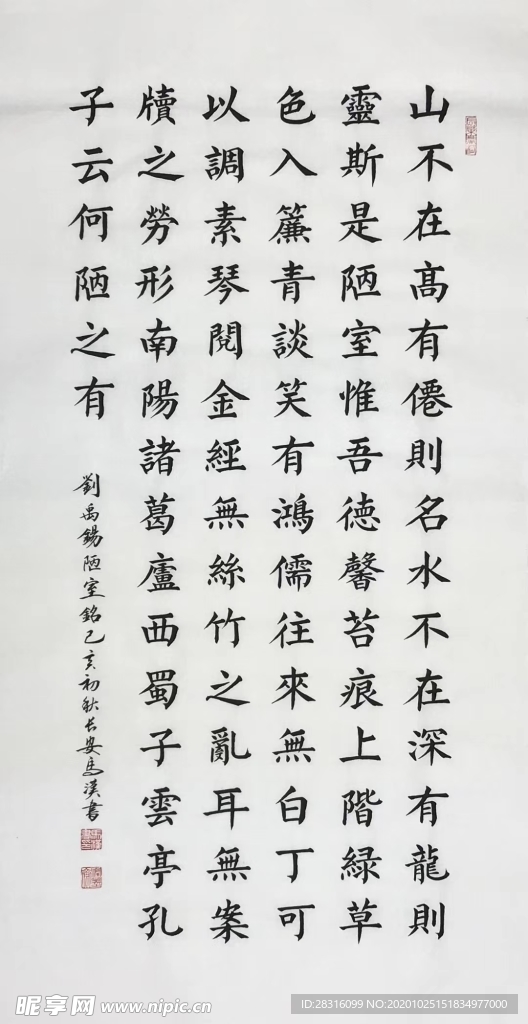 山不在髙有僊則名水不在深有龍則
靈斯是陋室惟吾徳馨苔痕上階緑草
色入簾青談笑有鴻儒往來無白丁可
以調素琴閱金經無絲竹之亂耳無案
牘之勞形南陽諸葛廬西蜀子雲亭孔
子云何陋之有
劉禹錫陋室銘己亥初秋长安馬漢書
昵享网 www.nipic.cn
ID:28316099 NO:20201025151834977000